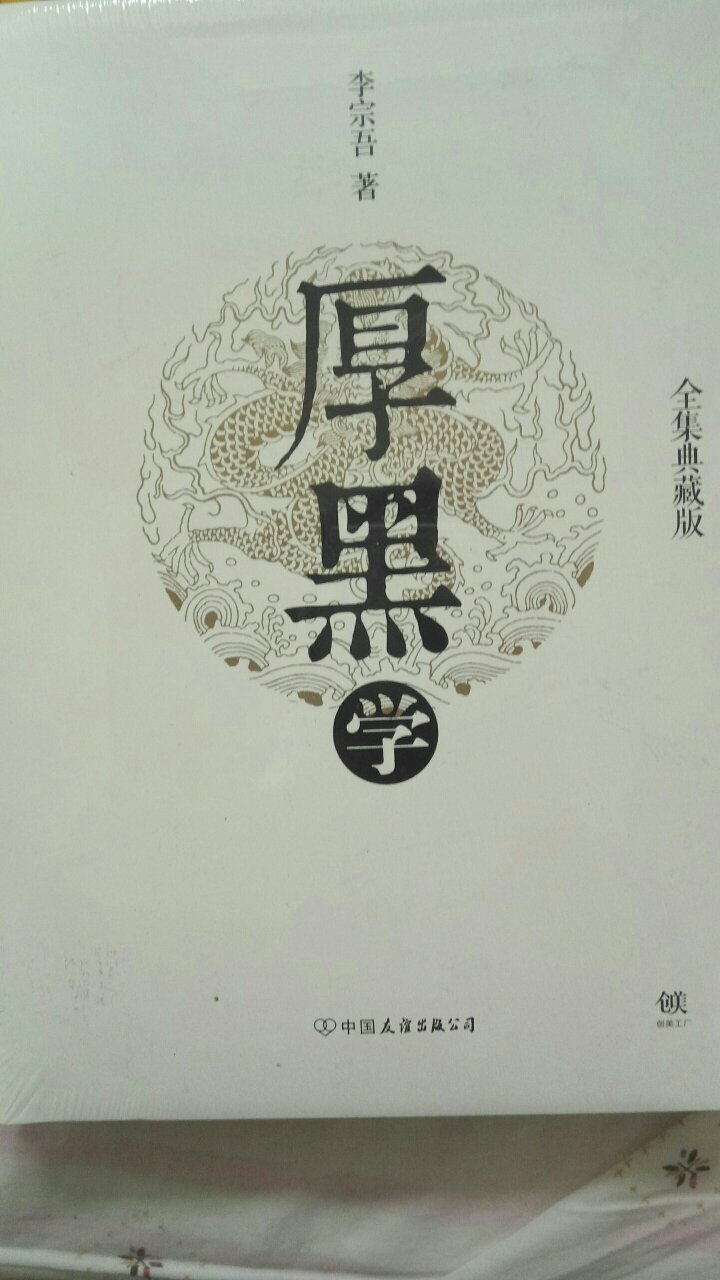 李宗吾 著
厚黑学
全集典藏版
中国友谊出版公司
创美
创美工厂